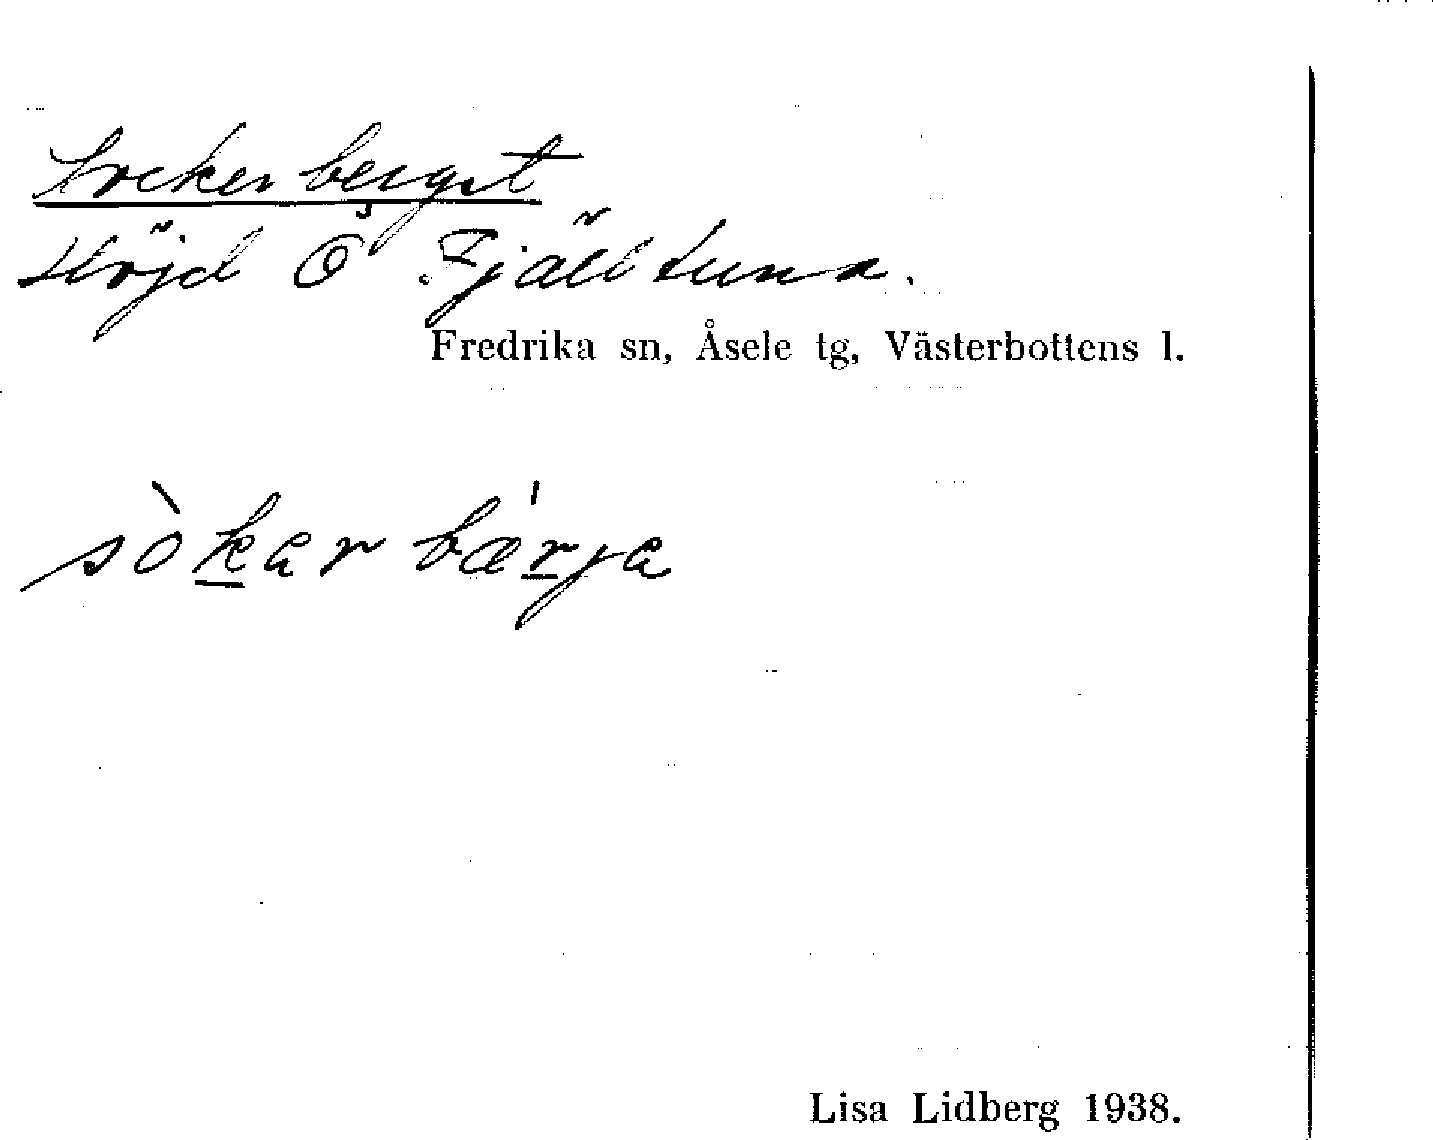 Sockerberget
Höjd Ö Fjälltuna.
Fredrika sn, Åsele tg, Västerbottens l.
sò̀kar bǽrja
Lisa Lidberg 1938.